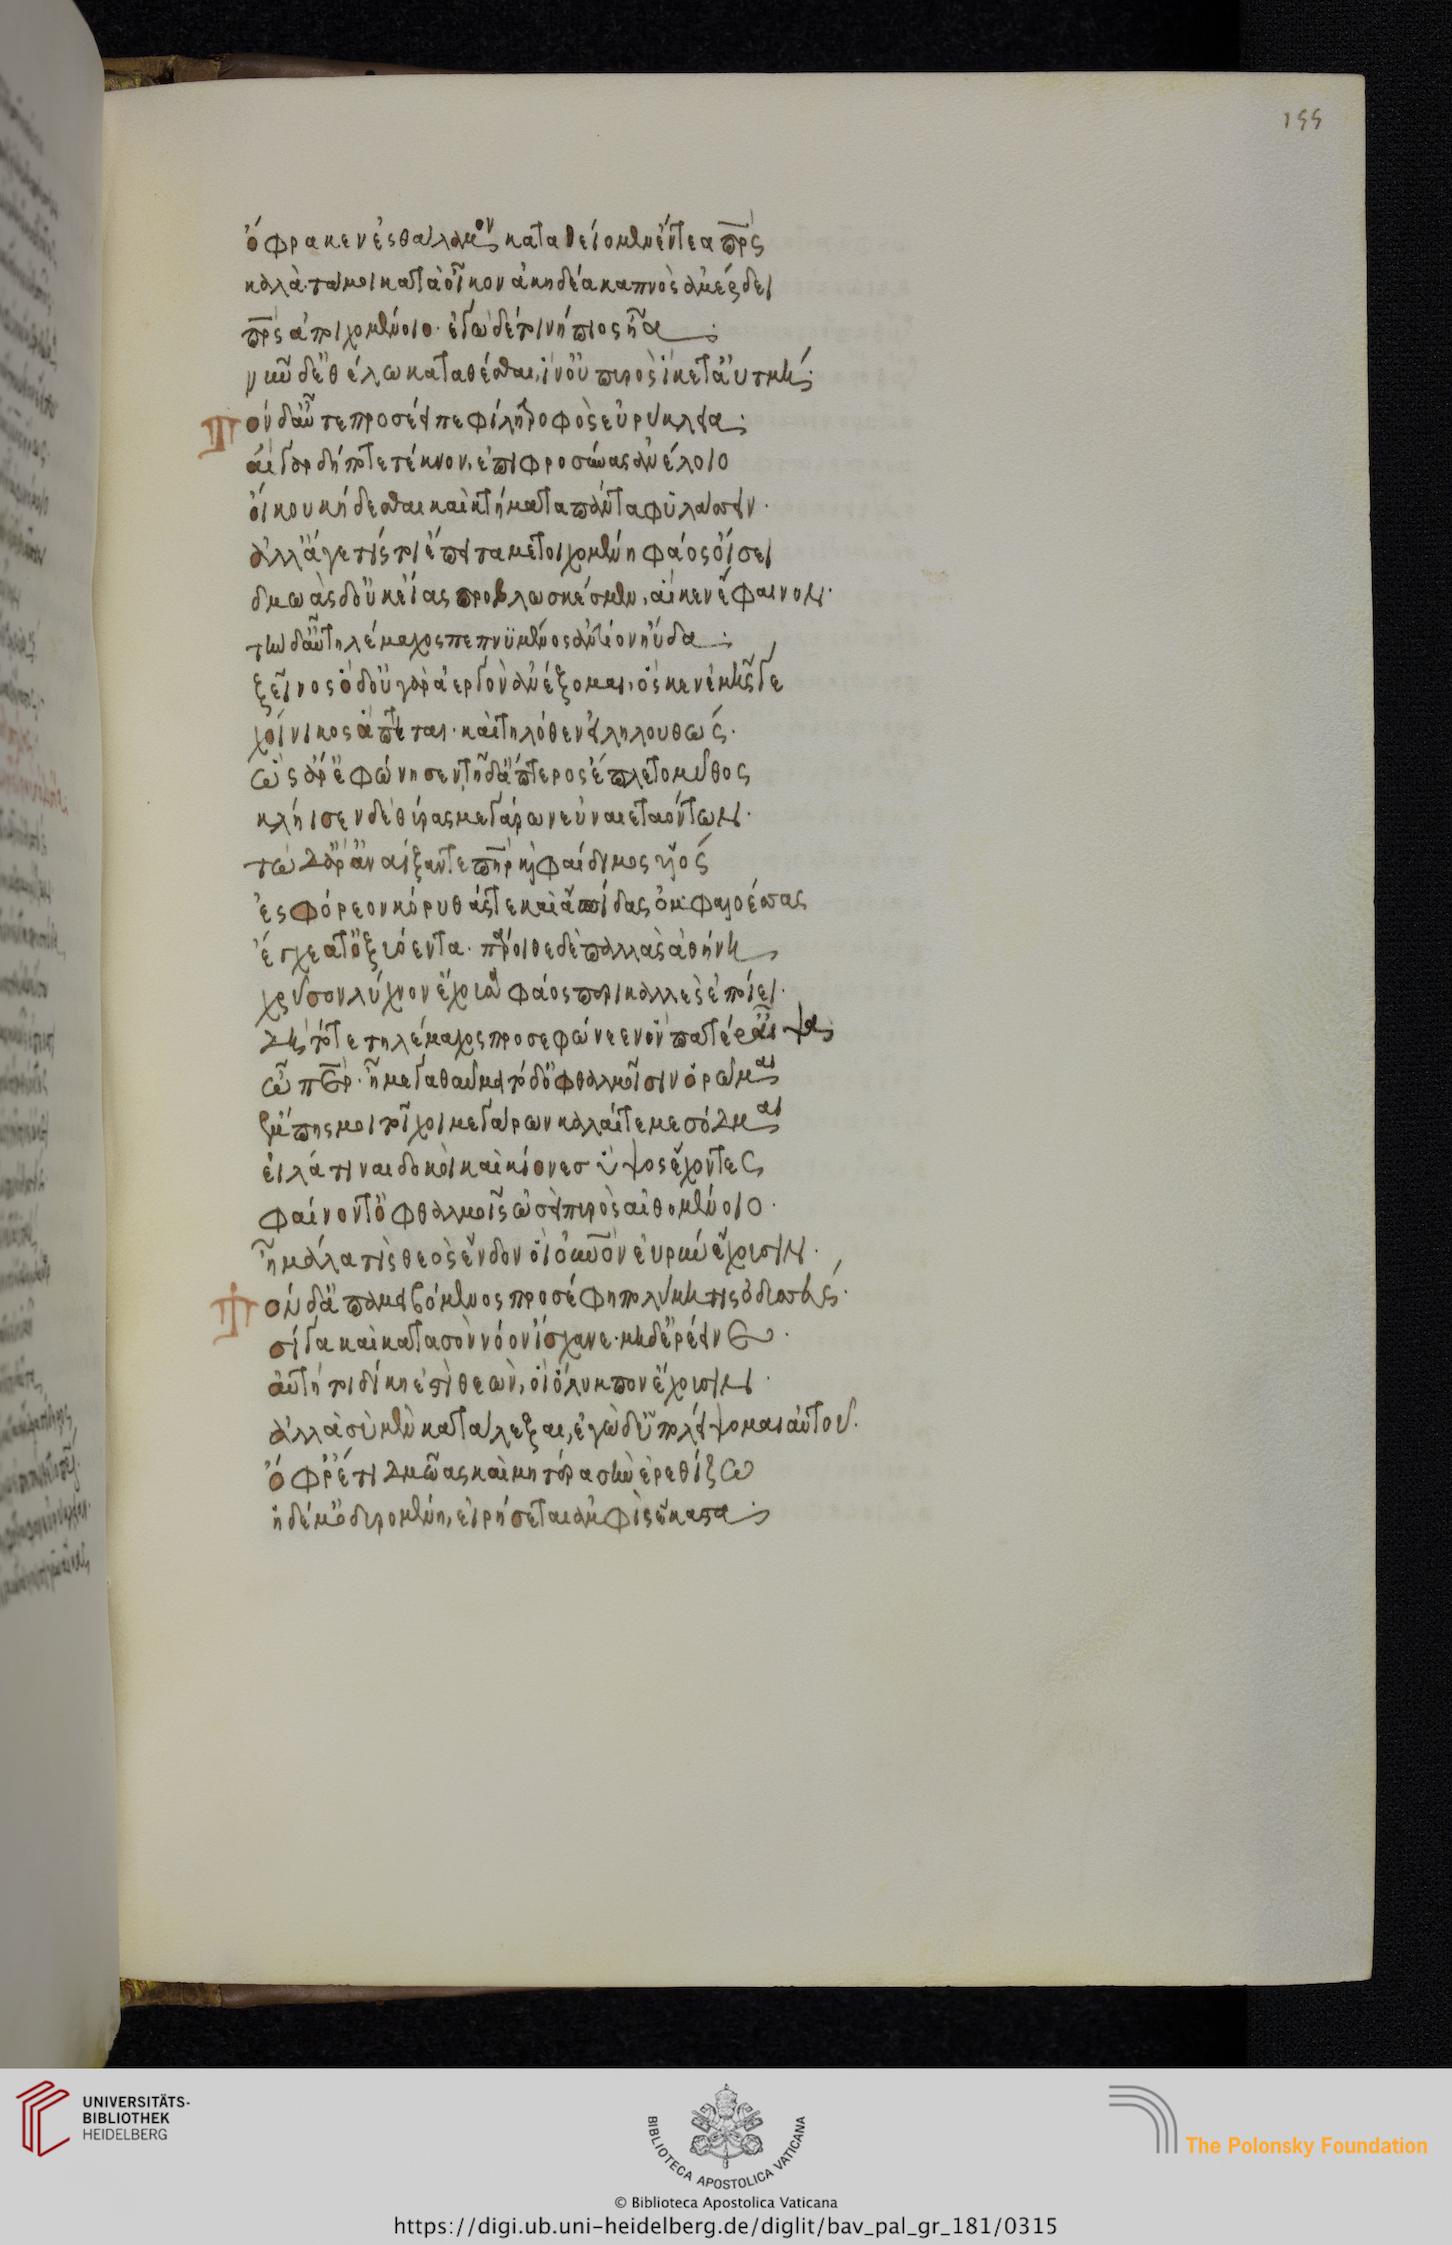 155
ὄφρα κεν ἐς θάλαμον καταθείομεν ἔντεα πρς
καλὰ· τά μοι κατὰ οἶκον ἀκηδέα καπνὸς ἀμέρδει
πρς ἀποιχομένοιο· ἐγὼ δέ τοι νήπιος ἦα
νῦν δ' ἐθέλω καταθέσθαι, ἵν' οὐ πυρὸς ἵκετ' ἀυτμή·
Τὸν δ' αὖτε προσέειπε φίλη τροφὸς εὐρύκλεια·
αἲ γὰρ δή ποτε τέκνον, ἐπιφροσύνας ἀνέλοιο
οἴκου κήδεσθαι καὶ κτήματα πάντα φυλάσσειν·
ἀλλ' ἄγε τίς τοι ἔπειτα μετοιχομένη φάος οἴσει
δμωὰς δ' οὐκ εἴας προβλωσκέμεν, αἵ κεν ἔφαινον·
τὴν δ' αὖ τηλέμαχος πεπνυμένος ἀντίον ηὔδα·
ξεῖνος ὅδ' οὐ γὰρ ἀεργὸν ἀνέξομαι, ὅς κεν ἐμῆς γε
χοίνικος ἅπτεται· καὶ τηλόθεν εἰληλουθώς·
ὣς ἄρ' ἐφώνησεν τῇ δ' ἄπτερος ἔπλετο μῦθος
κλήισεν δὲ θύρας μεγάρων εὐναιεταόντων·
τὼ δ' ἄρ' ἀναίξαντε πηρ καὶ φαίδιμος υἱός
ἐσφόρεον κόρυθάς τε καὶ ἀσπίδας ὀμφαλοέσσας
ἔγχεά τ' ὀξυόεντα· πάροιθε δὲ παλλὰς ἀθήνη
χρύσον λύχνον ἔχουσα φάος περικαλλὲς ἐποίει·
δὴ τότε τηλέμαχος προσεφώνεεν ὃν πατέρ' αἶψα
ὦ περ· ἦ μέγα θαῦμα τόδ' ὀφθαλμοῖσιν ὁρῶμαι
ἔμπης μοι τοῖχοι μεγάρων καλαί τε μεσόδμαι
εἰλάτιναι δοκοὶ καὶ κίονες ὑψόσ' ἔχοντες
φαίνοντ' ὀφθαλμοῖς ὡσεὶ πυρὸς αἰθομένοιο·
ἦ μάλα τὶς θεὸς ἔνδον οἳ οὐνον εὐρὺν ἔχουσιν·
Τὸν δ' ἀπαμειβόμενος προσέφη πολύμητις ὀδυσσεύς·
σίγα καὶ κατὰ σὸν νόον ἴσχανε· μηδ' ἐρέεινε·
αὕτη τοι δίκη ἐστὶ θεῶν, οἳ ὄλυμπον ἔχουσιν·
ἀλλὰ σὺ μὲν κατάλεξαι, ἐγὼ δ' ὑπολείψομαι αὐτοῦ·
ὄφρ' ἔτι δμωὰς καὶ μητέρα σὴν ἐρεθίζω
ἡ δέ μ' ὀδυρομένη, εἰρήσεται ἀμφὶς ἕκαστα·
UNIVERSITÄTS-
BIBLIOTHEK
HEIDELBERG
BIBLIOTECA APOSTOLICA VATICANA
The Polonsky Foundation
© Biblioteca Apostolica Vaticana
https://digi.ub.uni-heidelberg.de/diglit/bav_pal_gr_181/0315